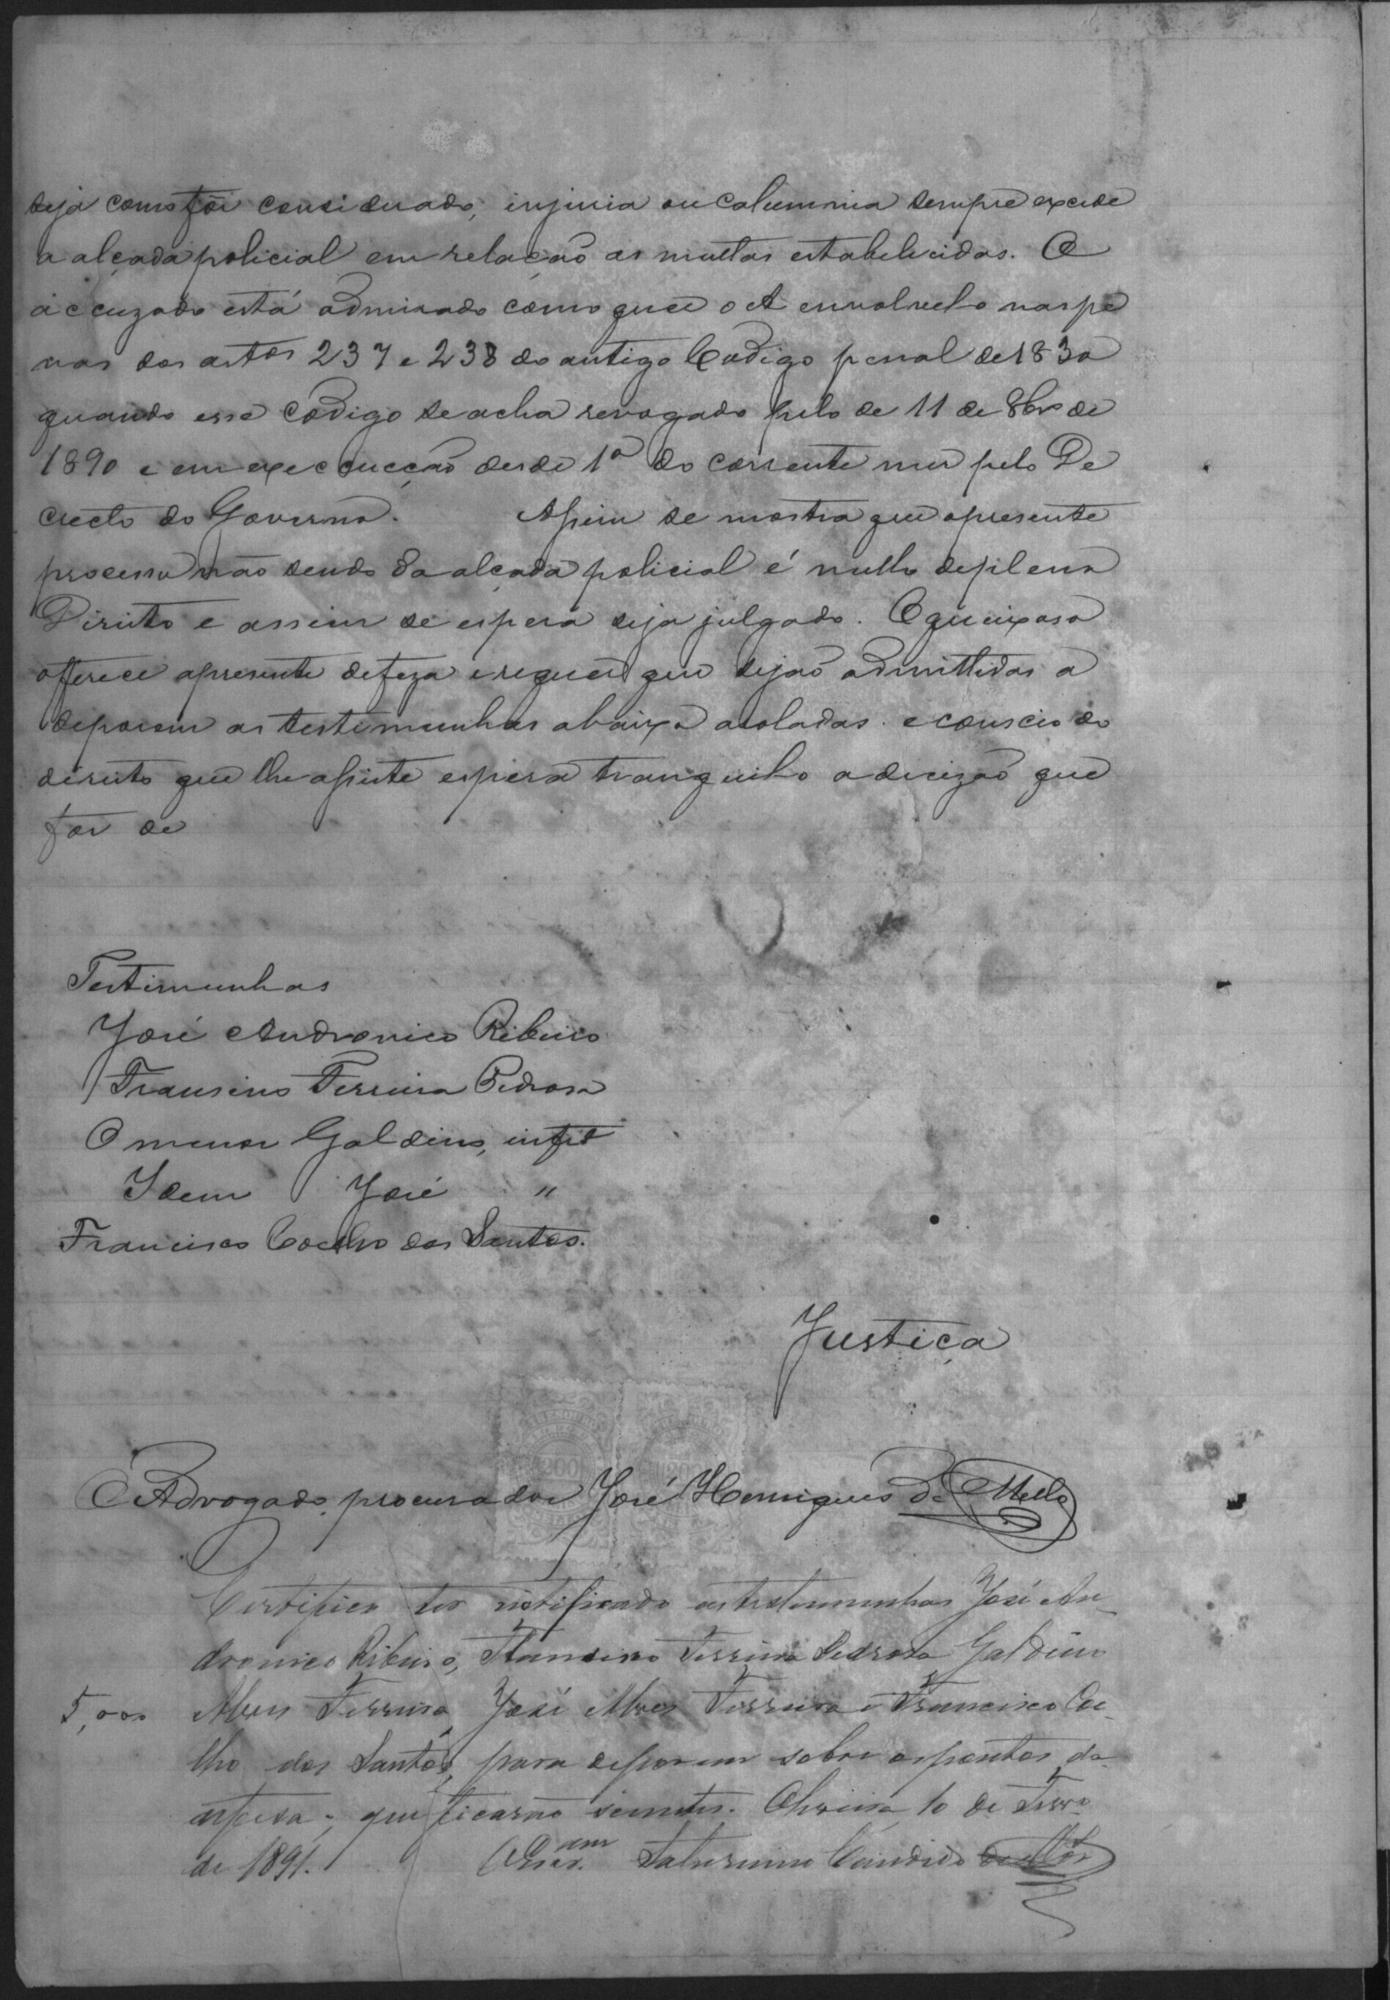 seja como fôr considerado, injuria ou calumnia sempre excede
a alçada policial em relação as multas estabelecidas. O
accuzado está admirado como que o A envolvelo nas pe
nas dos artos 237 e 238 do antigo Codigo penal de 1830
quando esse codigo se acha revogado pelo de 11 de 8bro de
1890 e em execcucção desde 1º do corrente mez pelo De
creto do Governo. Assim se mostra que apresente
processo não sendo da alçada policial é nullo depilena
Direito e assim se espera seja julgado. O queixoso
offerece apresente defeza e requer que sejão admittidas a
deporem as testimunhas abaixo aroladas e conscio do
direito que lhe assiste espera tranquillo a decizão que
for de
Testimunhas
José Andronico Ribeiro
Francino Ferreira Pedrosa
O menor Galdino, infor
Idem José "
Francisco Coelho dos Santos.
Justiça
O Advogado procurador José Henriques de Mello
Certifico ter notificado as testemunhas José An-
dronico Ribeiro, Francino Ferreira Pedrosa Galdino
5,000 Alves Ferreira José Alves Ferreira e Francisco Coe-
lho dos Santos, para deporem sobre os pontos da
defesa; que ficarão scientes. Oliveira 10 de Fevro
de 1891. O Escram Saturnino Candido
200
200